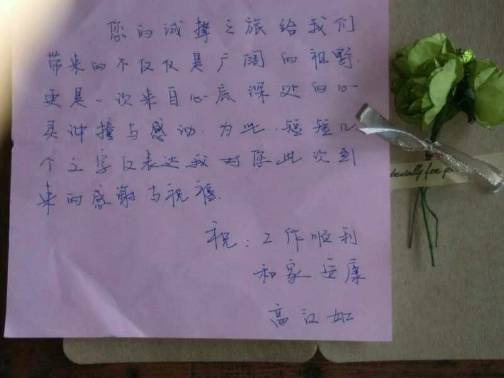 您的诚挚之旅给我们
带来的不仅仅是广阔的视野.
更是一次来自心底深处的心
灵冲撞与感动.为此,短短几
个文字仅表达敝对您此次到
来的感谢与祝福.
祝:工作顺利
和家安康
高江虹
for